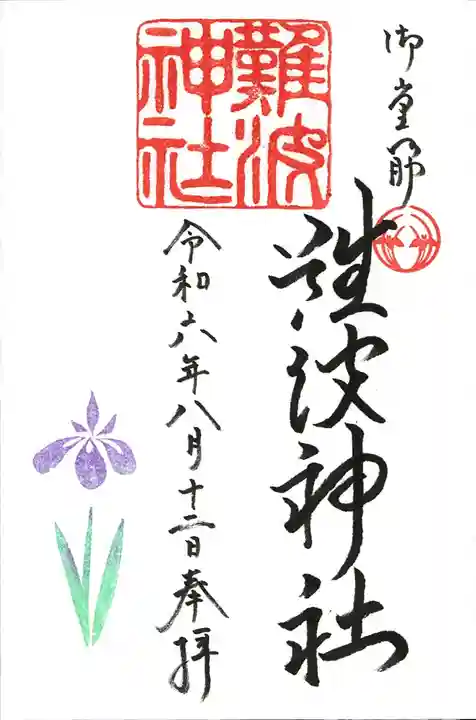 御堂筋
難波神社
難波
神社
令和六年八月十二日奉拝